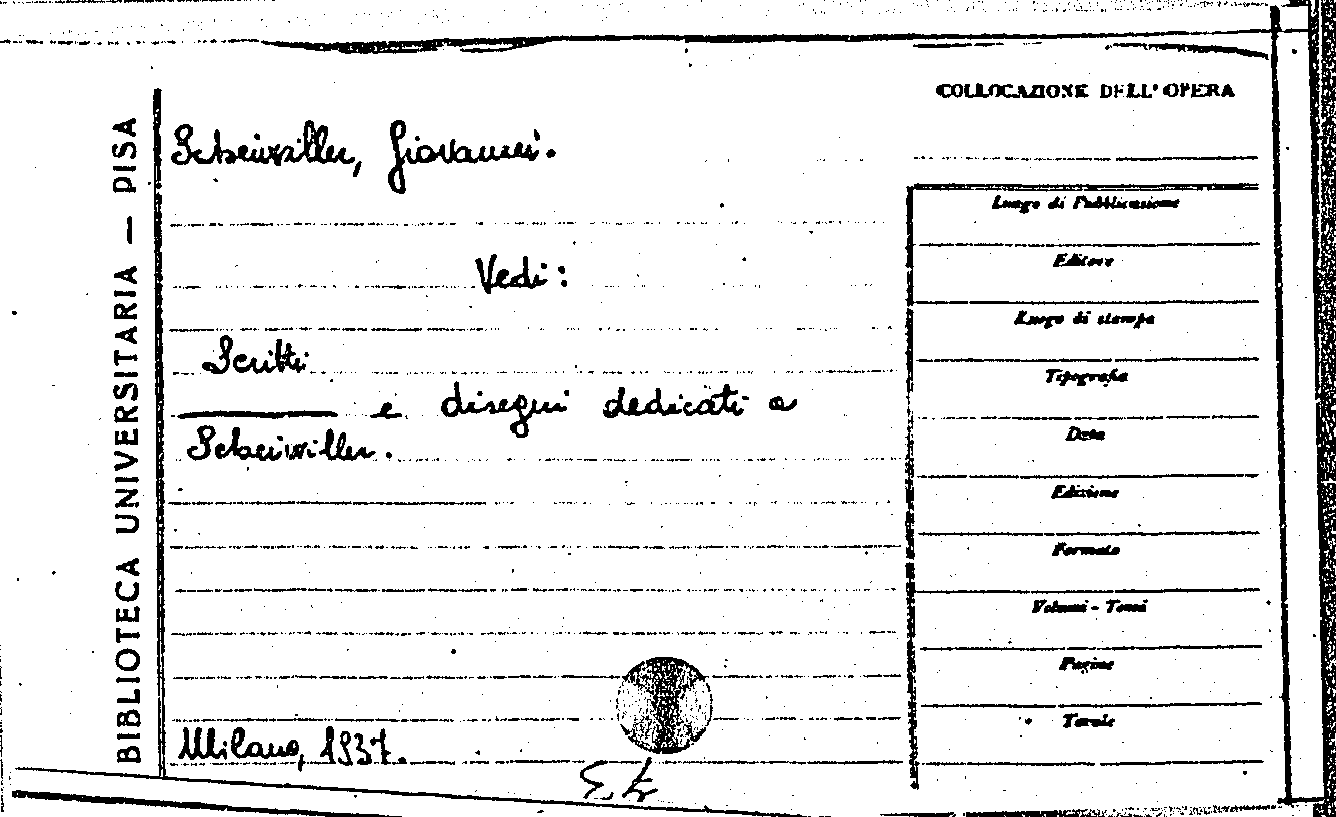 BIBLIOTECA UNIVERSITARIA — PISA
Scheiwiller, Giovanni.
Vedi:
Scritti
e disegni dedicati a
Scheiwiller.
Milano, 1937.
COLLOCAZIONE DELL' OPERA
Luogo di Pubblicazione
Editore
Luogo di stampa
Tipografia
Data
Edizione
Formato
Volumi - Tomi
Pagine
Tavole